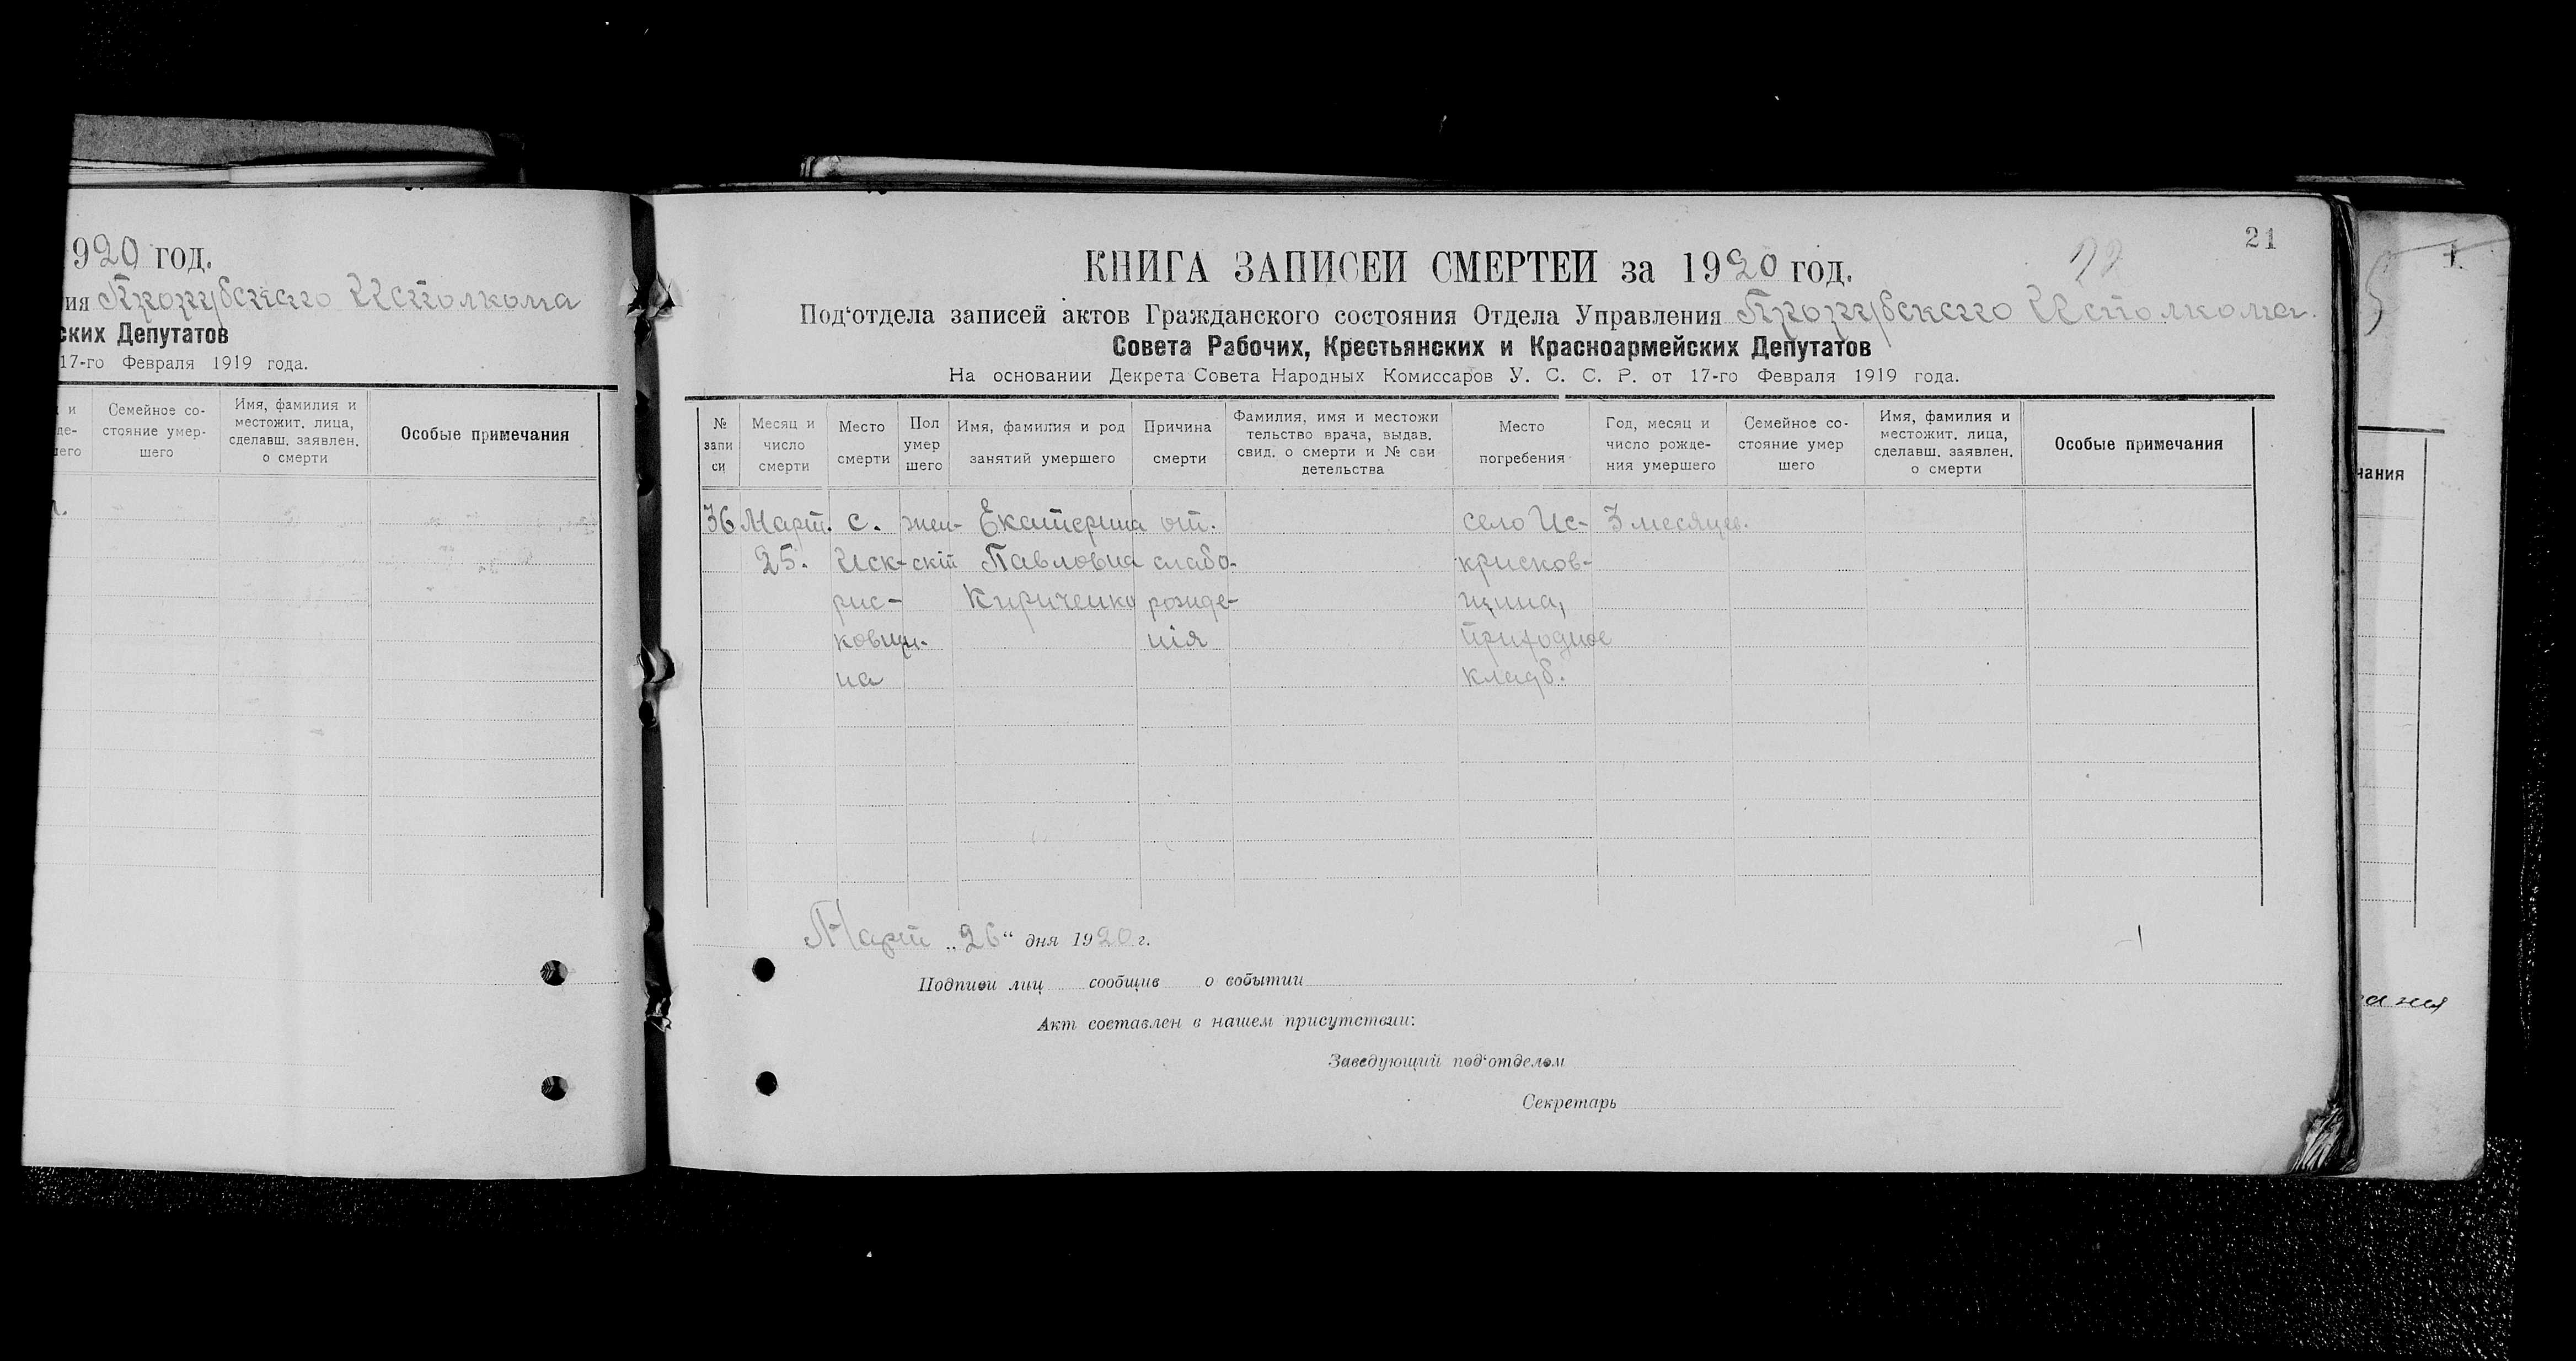 920 год.
ия Прорубского Исполкома
ских Депутатов
17-го Февраля 1919 года.
Семейное со-
стояние умер-
шего
Имя, фамилия и
местожит. лица,
сделавш. заявлен.
о смерти
Особые примечания
21
КНИГА ЗАПИСЕЙ СМЕРТЕЙ за 1920 год.
Под‘отдела записей актов Гражданского состояния Отдела Управления Прорубского Исполкома.
Совета Рабочих, Крестьянских и Красноармейских Депутатов
На основании Декрета Совета Народных Комиссаров У. С. С. Р. от 17-го Февраля 1919 года.
№
запи
си
Месяц и
число
смерти
Место
смерти
Пол
умер
шего
Имя, фамилия и род
занятий умершего
Причина
смерти
Фамилия, имя и местожи
тельство врача, выдав.
свид. о смерти и № сви
детельства
Место
погребения
Год, месяц и
число рожде-
ния умершего
Семейное со-
стояние умер
шего
Имя, фамилия и
местожит. лица,
сделавш. заявлен.
о смерти
Особые примечания
36
Март.
25.
с.
Иск-
рис-
ковщи-
на
жен-
скій
Екатерина
Павловна
Кириченко
от.
слабо-
рожде-
нія
село Ис-
крисков-
щина,
приходное
кладб.
3 месяцев.
Март „26“ дня 1920 г.
Подписи лиц сообщив о событии
Акт составлен в нашем присутствии:
Заведующий под‘отделом
Секретарь
чания